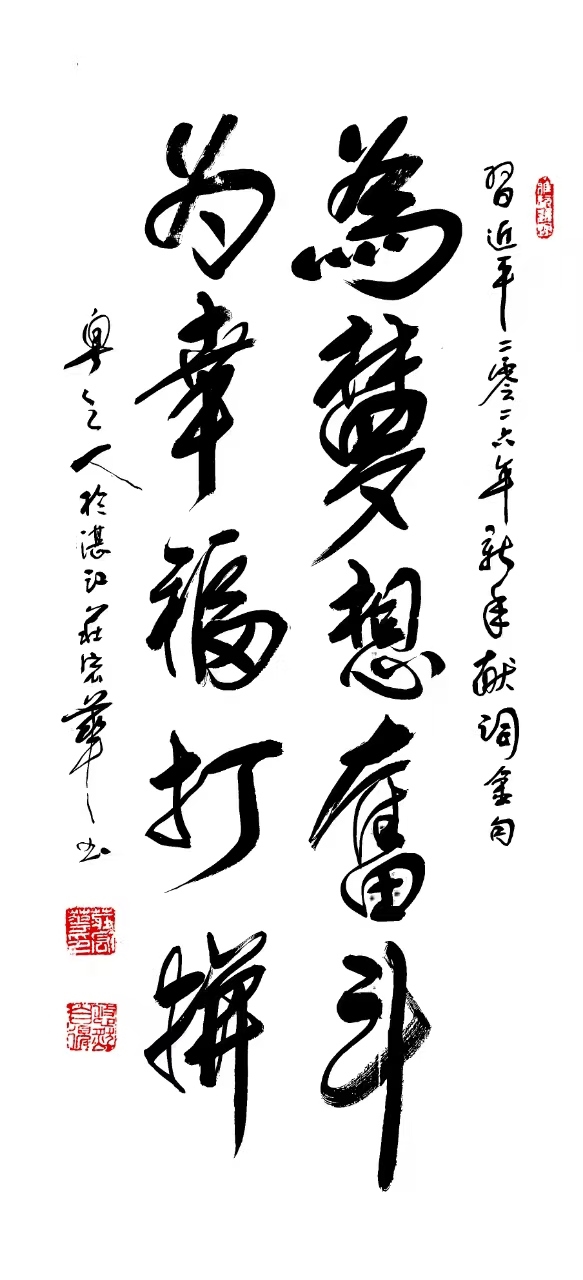 習近平二零二六年新年献詞金句
為夢想奮斗
为幸福打拼
粤之人於湛江莊宏華书